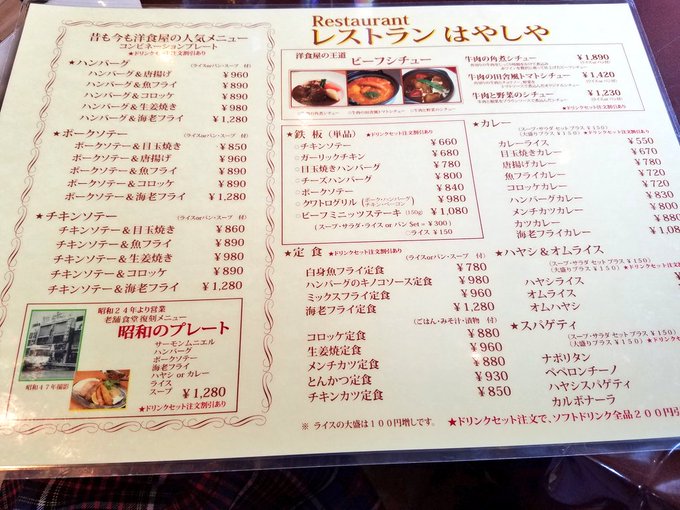 Restaurant
レストラン はやしや
昔も今も洋食屋の人気メニュー
コンビネーションプレート
★ドリンクセット注文割引あり
★ハンバーグ (ライスorパン・スープ 付)
ハンバーグ＆唐揚げ ￥960
ハンバーグ＆魚フライ ￥890
ハンバーグ＆コロッケ ￥890
ハンバーグ＆生姜焼 ￥980
ハンバーグ＆海老フライ ￥1,280
★ポークソテー (ライスorパン・スープ 付)
ポークソテー＆目玉焼き ￥850
ポークソテー＆唐揚げ ￥960
ポークソテー＆魚フライ ￥890
ポークソテー＆コロッケ ￥890
ポークソテー＆海老フライ ￥1,280
★チキンソテー (ライスorパン・スープ 付)
チキンソテー＆目玉焼き ￥860
チキンソテー＆魚フライ ￥890
チキンソテー＆生姜焼 ￥980
チキンソテー＆コロッケ ￥890
チキンソテー＆海老フライ ￥1,280
昭和２４年より営業
老舗食堂復刻メニュー
昭和のプレート
サーモンムニエル
ハンバーグ
ポークソテー
海老フライ
ハヤシ or カレー
ライス
スープ ￥1,280
昭和４７年撮影
★ドリンクセット注文割引あり
洋食屋の王道
ビーフシチュー
牛肉の角煮シチュー ￥1,890
牛肉の田舎風トマトシチュー ￥1,420
牛肉と野菜のシチュー ￥1,230
★鉄 板（単品） ★ドリンクセット注文割引あり
○チキンソテー ￥660
○ガーリックチキン ￥680
○目玉焼きハンバーグ ￥780
○チーズハンバーグ ￥800
○ポークソテー ￥840
○クワトログリル (ポーク・ハンバーグ チキン・ベーコン) ￥980
○ビーフミニッツステーキ (150g) ￥1,080
(スープ・サラダ・ライス or パン Set = ￥300)
○ライス ￥150
★定 食 ★ドリンクセット注文割引あり
(ライスorパン・スープ 付)
白身魚フライ定食 ￥780
ハンバーグのキノコソース定食 ￥780
ミックスフライ定食 ￥960
海老フライ定食 ￥1,280
(ごはん・みそ汁・漬物 付)
コロッケ定食 ￥880
生姜焼定食 ￥960
メンチカツ定食 ￥880
とんかつ定食 ￥930
チキンカツ定食 ￥850
★カレー (スープ・サラダ セットプラス ￥150)
(大盛りプラス ￥150)
カレーライス ￥550
目玉焼きカレー ￥670
唐揚げカレー ￥770
魚フライカレー ￥720
コロッケカレー ￥720
ハンバーグカレー ￥830
メンチカツカレー ￥800
カツカレー ￥880
海老フライカレー
★ハヤシ＆オムライス
(スープ・サラダ セットプラス ￥150)
(大盛りプラス ￥150)
ハヤシライス
オムライス
オムハヤシ
★スパゲティ
(スープ・サラダ セットプラス ￥150)
(大盛りプラス ￥150)
ナポリタン
ペペロンチーノ
ハヤシスパゲティ
カルボナーラ
※ ライスの大盛は１００円増しです。
★ドリンクセット注文で、ソフトドリンク全品２００円